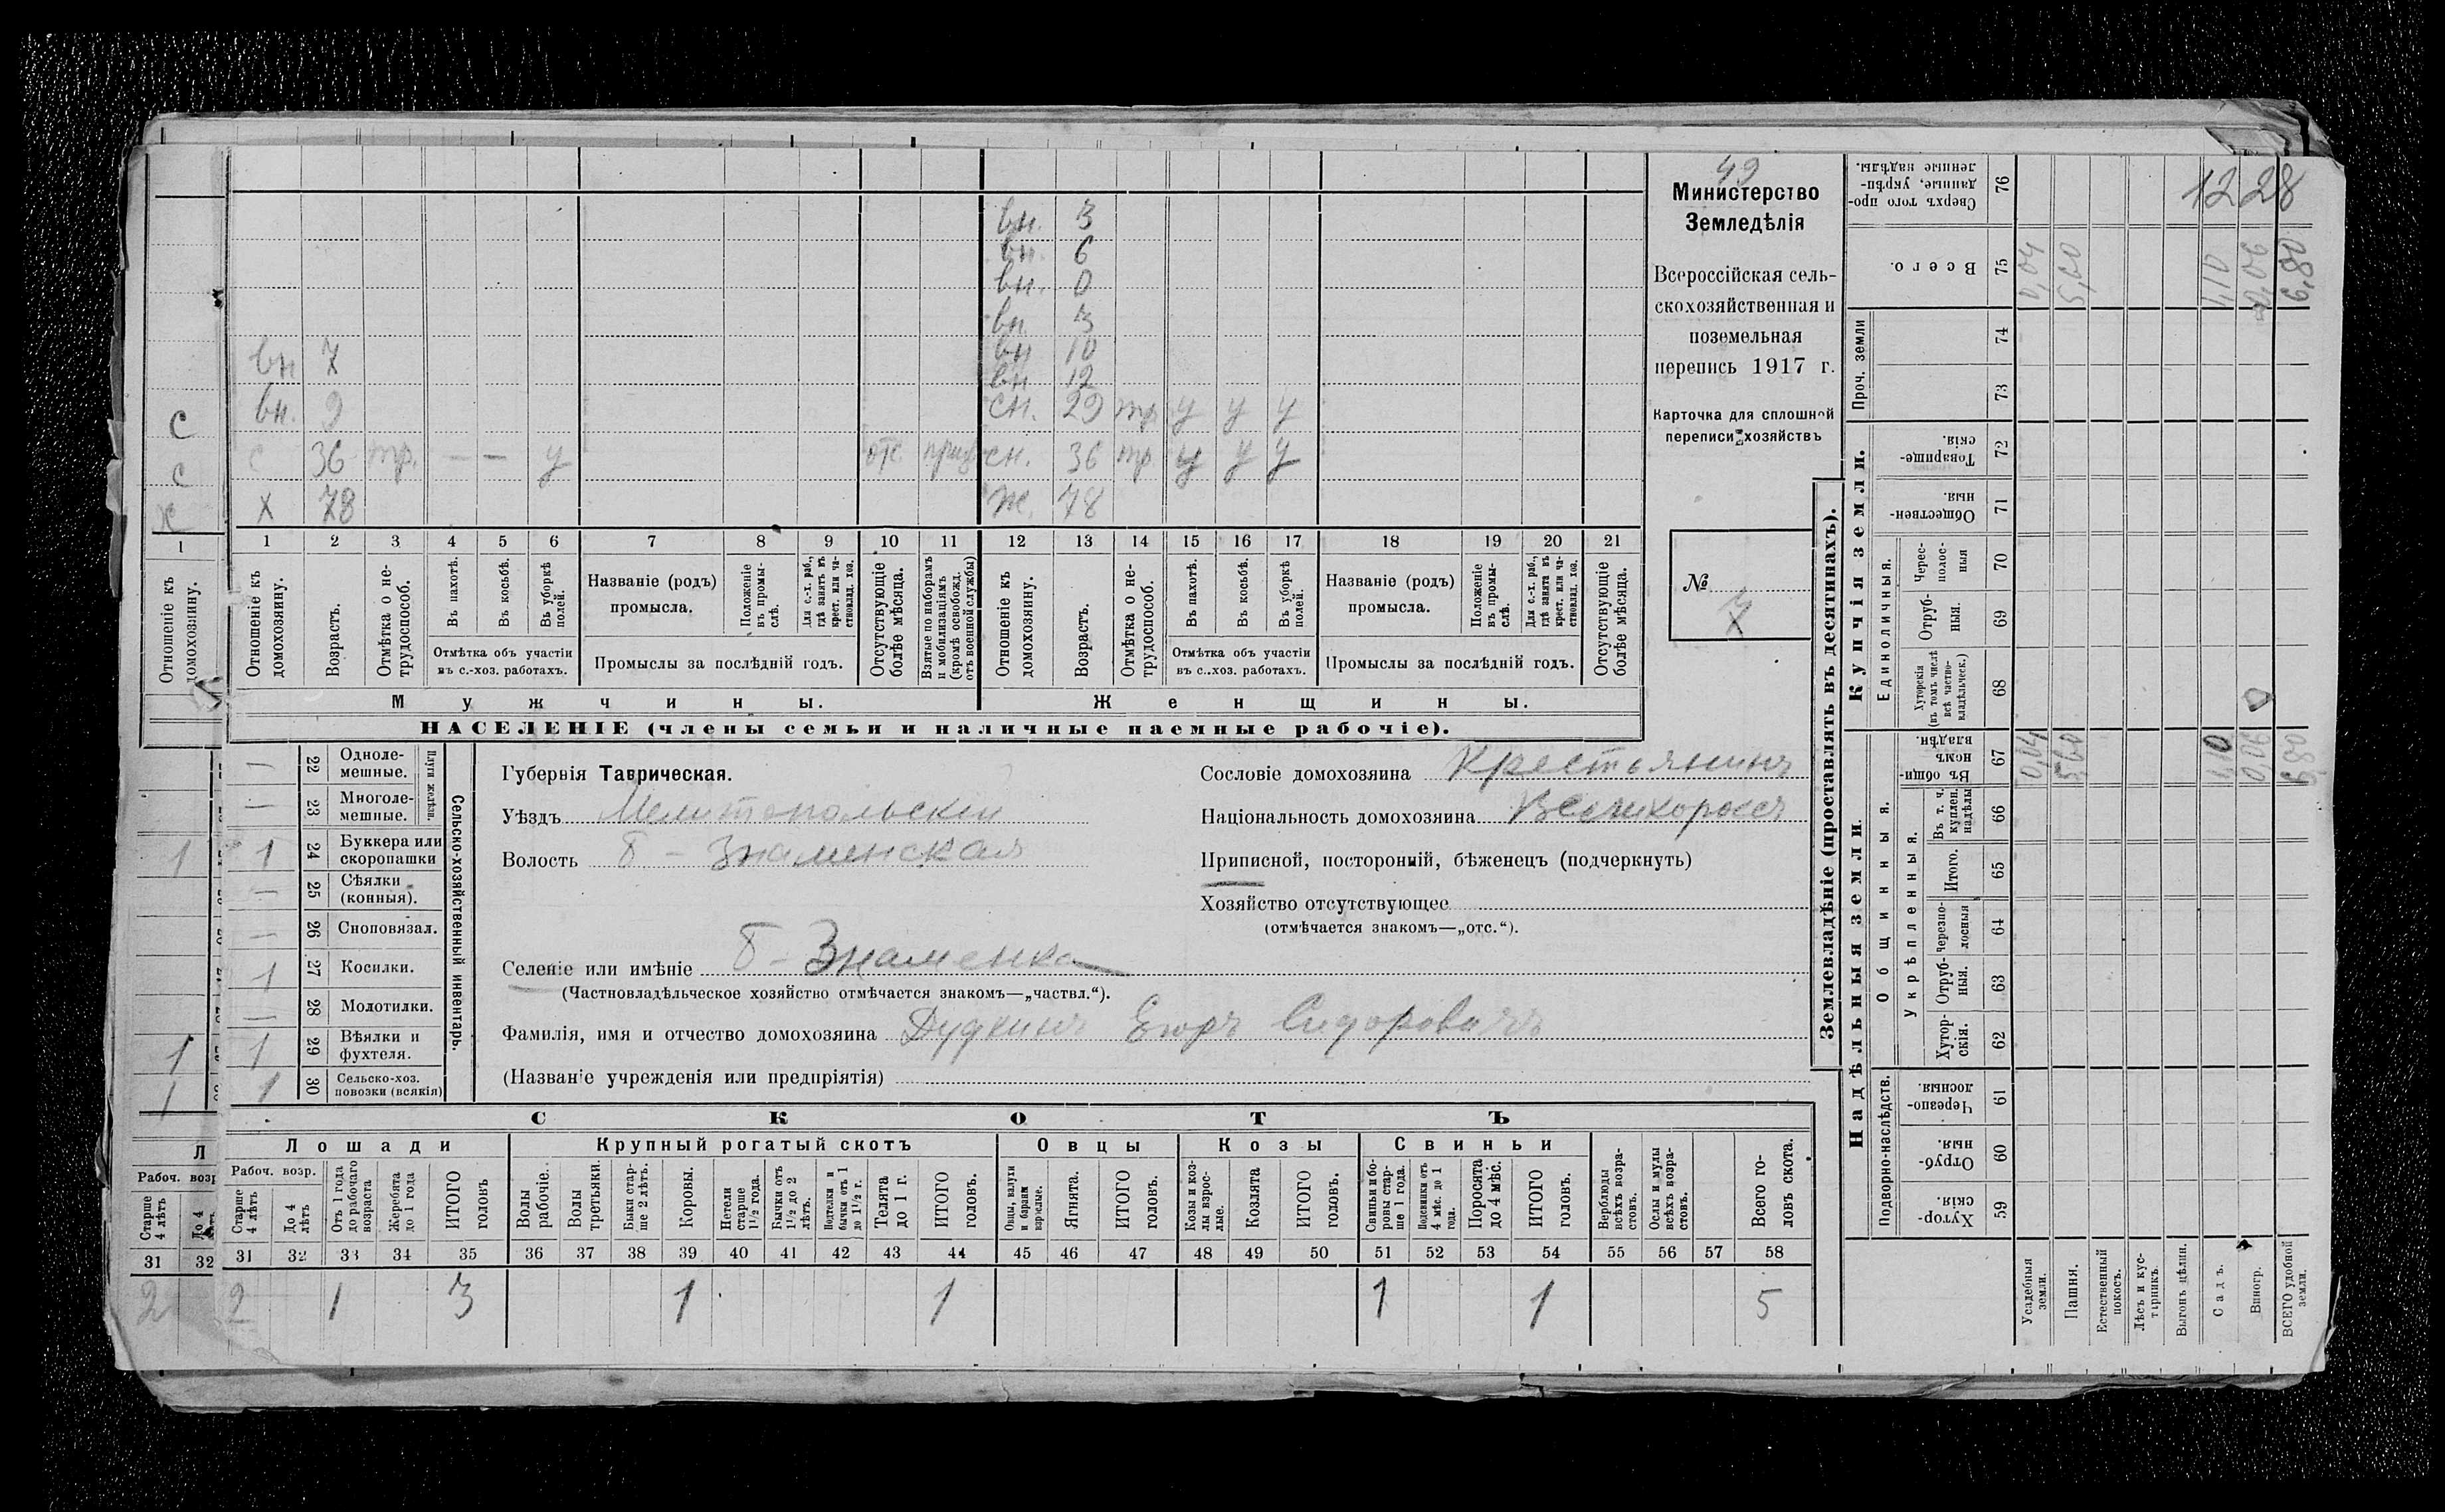 49
Министерство
Земледѣлія
Всероссійская сель-
скохозяйственная и
поземельная
перепись 1917 г.
Карточка для сплошной
переписи хозяйствъ
№ 7
1228
вн. 3
вн. 6
вн. 0
вн. 3
вн 7 вн 10
вн 12
с вн. 9 сн. 29 тр. у у у
с с 36 тр. — — у отс. сн. 36 тр. у у у
х х 78 ж. 78
1 1 2 3 4 5 6 7 8 9 10 11 12 13 14 15 16 17 18 19 20 21
Отношеніе къ домохозяину.
Отношеніе къ домохозяину.
Возрастъ.
Отмѣтка о не-трудоспособ.
Въ пахотѣ.
Въ косьбѣ.
Въ уборкѣ полей.
Отмѣтка объ участіи
въ с.-хоз. работахъ.
Названіе (родъ)
промысла.
Положеніе въ промы-слѣ.
Для с.-х. раб., гдѣ занятъ въ крест. или ча-стновлад. хоз.
Промыслы за послѣдній годъ.
Отсутствующіе болѣе мѣсяца.
Взятые по наборамъ и мобилизаціямъ (кромѣ освобожд. отъ военной службы)
Отношеніе къ домохозяину.
Возрастъ.
Отмѣтка о не-трудоспособ.
Въ пахотѣ.
Въ косьбѣ.
Въ уборкѣ полей.
Отмѣтка объ участіи
въ с..хоз. работахъ.
Названіе (родъ)
промысла.
Положеніе въ промы-слѣ.
Для с.-х. раб., гдѣ занята въ крест. или ча-стновлад. хоз.
Промыслы за послѣдній годъ.
Отсутствующіе болѣе мѣсяца.
Мужчины. Женщины.
НАСЕЛЕНІЕ (члены семьи и наличные наемные рабочіе).
Сельско-хозяйственный инвентарь.
Плуги желѣз.
— 22 Одноле-мешные.
— 23 Многоле-мешные.
1 1 24 Буккера или скоропашки
— 25 Сѣялки (конныя).
— 26 Сноповязал.
1 27 Косилки.
— 28 Молотилки.
1 1 29 Вѣялки и фухтеля.
1 1 30 Сельско-хоз. повозки (всякія)
Губернія Таврическая.
Уѣздъ Мелитопольскій
Волость Б - Знаменская
Селеніе или имѣніе Б - Знаменка
(Частновладѣльческое хозяйство отмѣчается знакомъ—„частвл.“).
Фамилія, имя и отчество домохозяина Дудкинъ Егоръ Сидоровичъ
(Названіе учрежденія или предпріятія)
Сословіе домохозяина Крестьянинъ
Національность домохозяина Великороссъ
Приписной, посторонній, бѣженецъ (подчеркнуть)
Хозяйство отсутствующее
(отмѣчается знакомъ—„отс.“).
СКОТЪ
Л
Рабоч. возр
Старше 4 лѣтъ
До 4 лѣтъ
31 32
2
Лошади Крупный рогатый скотъ Овцы Козы Свиньи
Рабоч. возр.
Старше 4 лѣтъ
До 4 лѣтъ
Отъ 1 года до рабочаго возраста
Жеребята до 1 года
ИТОГО головъ
Волы рабочіе.
Волы третьяки.
Быки стар-ше 2 лѣтъ.
Коровы.
Нетели старше 1 1/2 года.
Бычки отъ 1 1/2 до 2 лѣтъ.
Подтелки и бычки отъ 1 до 1 1/2 г.
Телята до 1 г.
ИТОГО головъ.
Овцы, валухи и бараны взрослые.
Ягнята.
ИТОГО головъ.
Козы и коз-лы взрос-лые.
Козлята
ИТОГО головъ.
Свиньи и бо-ровы стар-ше 1 года.
Подсвинки отъ 4 мѣс. до 1 года.
Поросята до 4 мѣс.
ИТОГО головъ.
Верблюды всѣхъ возра-стовъ.
Ослы и мулы всѣхъ возра-стовъ.
Всего го-ловъ скота.
31 32 33 34 35 36 37 38 39 40 41 42 43 44 45 46 47 48 49 50 51 52 53 54 55 56 57 58
2 1 3 1 1 1 1 5
Землевладѣніе (проставлять въ десятинахъ).
Купчія земли.
Надѣльныя земли.
Проч. земли
Единоличныя.
Общинныя.
Укрѣпленныя.
Подворно-наслѣдств.
76 Сверхъ того про-данные, укрѣп-ленные надѣлы.
75 Всего. 0,04 5,60 1,10 0,06 6,80
74
73
72 Товарище-скія.
71 Обществен-ныя.
70 Черес-полос-ныя
69 Отруб-ныя.
68 Хуторскія (въ томъ числѣ всѣ частно-владѣльческ.)
67 Въ общин-номъ владѣн. 0,04 5,60 1,10 0,06 6,80
66 Въ т. ч. куплен. надѣлы
65 Итого.
64 Черезпо-лосныя
63 Отруб-ныя.
62 Хутор-скія.
61 Черезпо-лосныя.
60 Отруб-ныя.
59 Хутор-скія.
Усадебныя земли.
Пашня.
Естественный покосъ.
Лѣсъ и кус-тарникъ.
Выгонъ цѣлин.
Садъ.
Виногр.
ВСЕГО удобной земли.